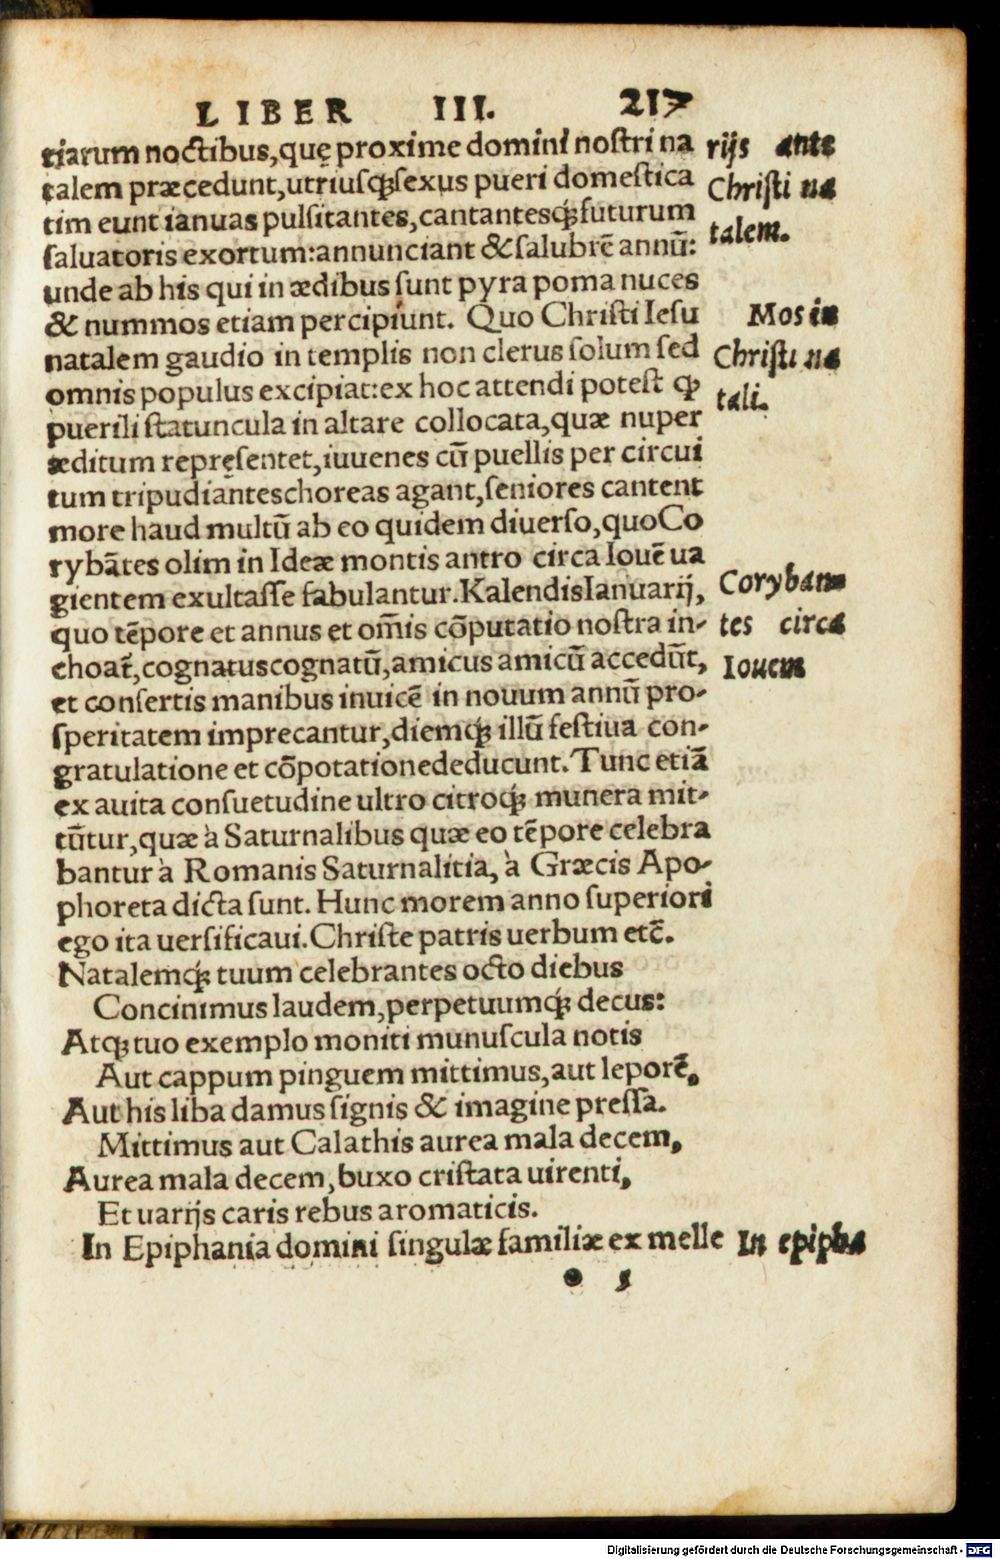 LIBER III. 217
tiarum noctibus, quę proxime domini nostri na
talem præcedunt, utriusq; sexus pueri domestica
tim eunt ianuas pulsitantes, cantantesq; futurum
saluatoris exortum: annunciant & salubrē annū:
unde ab his qui in ædibus sunt pyra poma nuces
& nummos etiam percipiunt. Quo Christi Iesu
natalem gaudio in templis non clerus solum sed
omnis populus excipiat: ex hoc attendi potest ꝙ
puerili statuncula in altare collocata, quæ nuper
æditum repręsentet, iuuenes cū puellis per circui
tum tripudiantes choreas agant, seniores cantent
more haud multū ab eo quidem diuerso, quo Co
rybātes olim in Ideæ montis antro circa Iouē ua
gientem exultasse fabulantur. Kalendis Ianuarij,
quo tēpore et annus et om̄is cōputatio nostra in-
choat̄, cognatus cognatū, amicus amicū accedūt,
et consertis manibus inuicē in nouum annū pro-
speritatem imprecantur, diemq; illū festiua con-
gratulatione et cōpotatione deducunt. Tunc etiā
ex auita consuetudine ultro citroq; munera mit-
tūtur, quæ à Saturnalibus quæ eo tēpore celebra
bantur à Romanis Saturnalitia, à Græcis Apo-
phoreta dicta sunt. Hunc morem anno superiori
ego ita uersificaui. Christe patris uerbum etc̄.
Natalemq; tuum celebrantes octo diebus
Concinimus laudem, perpetuumq; decus:
Atq; tuo exemplo moniti munuscula notis
Aut cappum pinguem mittimus, aut leporē,
Aut his liba damus signis & imagine pressa.
Mittimus aut Calathis aurea mala decem,
Aurea mala decem, buxo cristata uirenti,
Et uarijs caris rebus aromaticis.
In Epiphania domini singulæ familiæ ex melle
rijs ante
Christi na
talem.
Mos in
Christi na
tali.
Coryban
tes circa
Iouem
In epipha
● 5
Digitalisierung gefördert durch die Deutsche Forschungsgemeinschaft - DFG